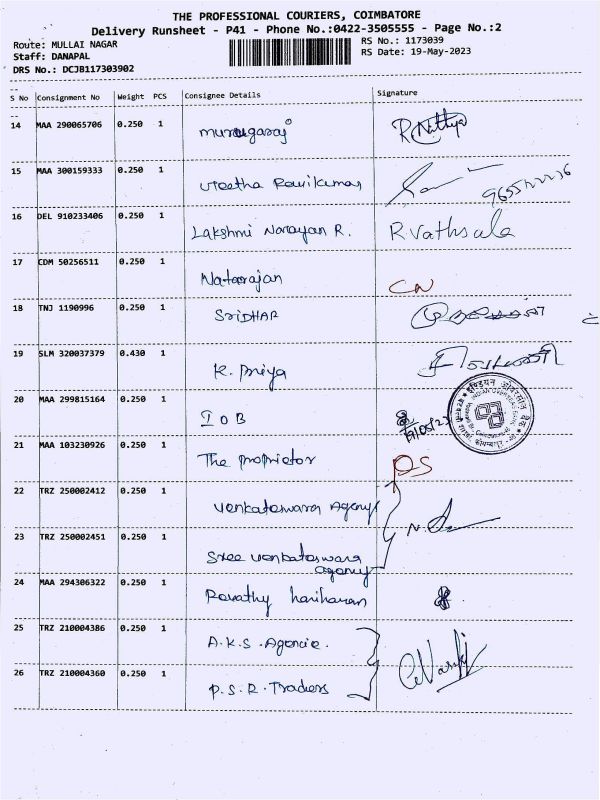 THE PROFESSIONAL COURIERS, COIMBATORE
Delivery Runsheet - P41 - Phone No.:0422-3505555 - Page No.:2
Route: MULLAI NAGAR
RS No.: 1173039
Staff: DANAPAL
RS Date: 19-May-2023
DRS No.: DCJB117303902
S No Consignment No Weight PCS Consignee Details Signature
14 MAA 290065706 0.250 1 murugaraj R. Nithya
15 MAA 300159333 0.250 1 Ravikumar
16 DEL 910233406 0.250 1 Lakshmi Narayan R. R. Vathsala
17 CDM 50256511 0.250 1 Natarajan CN
18 TNJ 1190996 0.250 1 SriDHAR
19 SLM 320037379 0.430 1 K. Priya
20 MAA 299815164 0.250 1 IOB
INDIAN OVERSEAS BANK
21 MAA 103230926 0.250 1 The proprietor PS
22 TRZ 250002412 0.250 1 Venkateswara Agency
23 TRZ 250002451 0.250 1 Sree Venkateswara
agency
24 MAA 294306322 0.250 1 Revathy hariharan
25 TRZ 210004386 0.250 1 A.K.S. Agencie.
26 TRZ 210004360 0.250 1 P.S.R. Traders